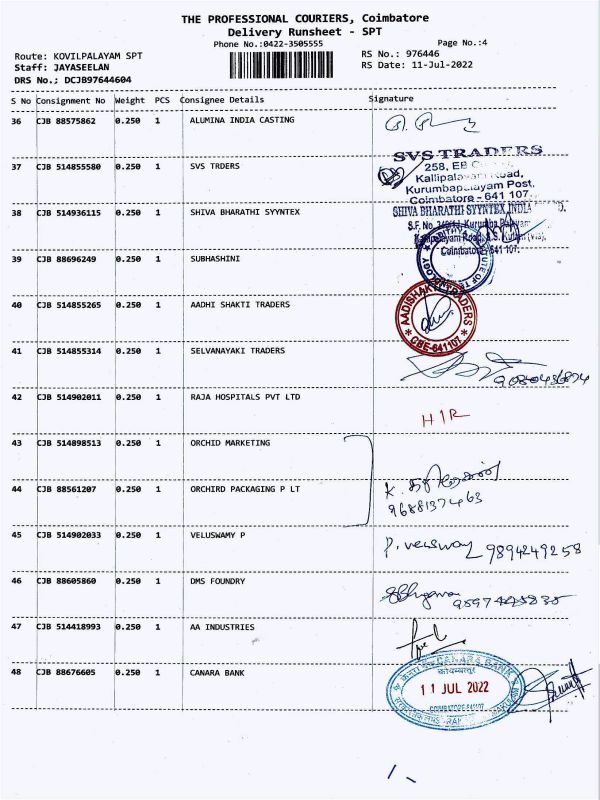 THE PROFESSIONAL COURIERS, Coimbatore
Delivery Runsheet - SPT
Phone No.:0422-3505555
Page No.:4
Route: KOVILPALAYAM SPT
RS No.: 976446
Staff: JAYASEELAN
RS Date: 11-Jul-2022
DRS No.; DCJB97644604
S No Consignment No Weight PCS Consignee Details Signature
36 CJB 88575862 0.250 1 ALUMINA INDIA CASTING
37 CJB 514855580 0.250 1 SVS TRDERS
SVS TRADERS
258, EB
Kallipalayam Road,
Kurumbapalayam Post,
Coimbatore - 641 107.
38 CJB 514936115 0.250 1 SHIVA BHARATHI SYYNTEX
SHIVA BHARATHI SYYNTEX INDIA
S.F. No.
Coimbatore 641 107.
39 CJB 88696249 0.250 1 SUBHASHINI
40 CJB 514855265 0.250 1 AADHI SHAKTI TRADERS
AADISHAKTI TRADERS
CBE-641107
41 CJB 514855314 0.250 1 SELVANAYAKI TRADERS
42 CJB 514902011 0.250 1 RAJA HOSPITALS PVT LTD
HIR
43 CJB 514898513 0.250 1 ORCHID MARKETING
44 CJB 88561207 0.250 1 ORCHIRD PACKAGING P LT
9688137463
45 CJB 514902033 0.250 1 VELUSWAMY P
9894249258
46 CJB 88605860 0.250 1 DMS FOUNDRY
47 CJB 514418993 0.250 1 AA INDUSTRIES
48 CJB 88676605 0.250 1 CANARA BANK
CANARA BANK
11 JUL 2022